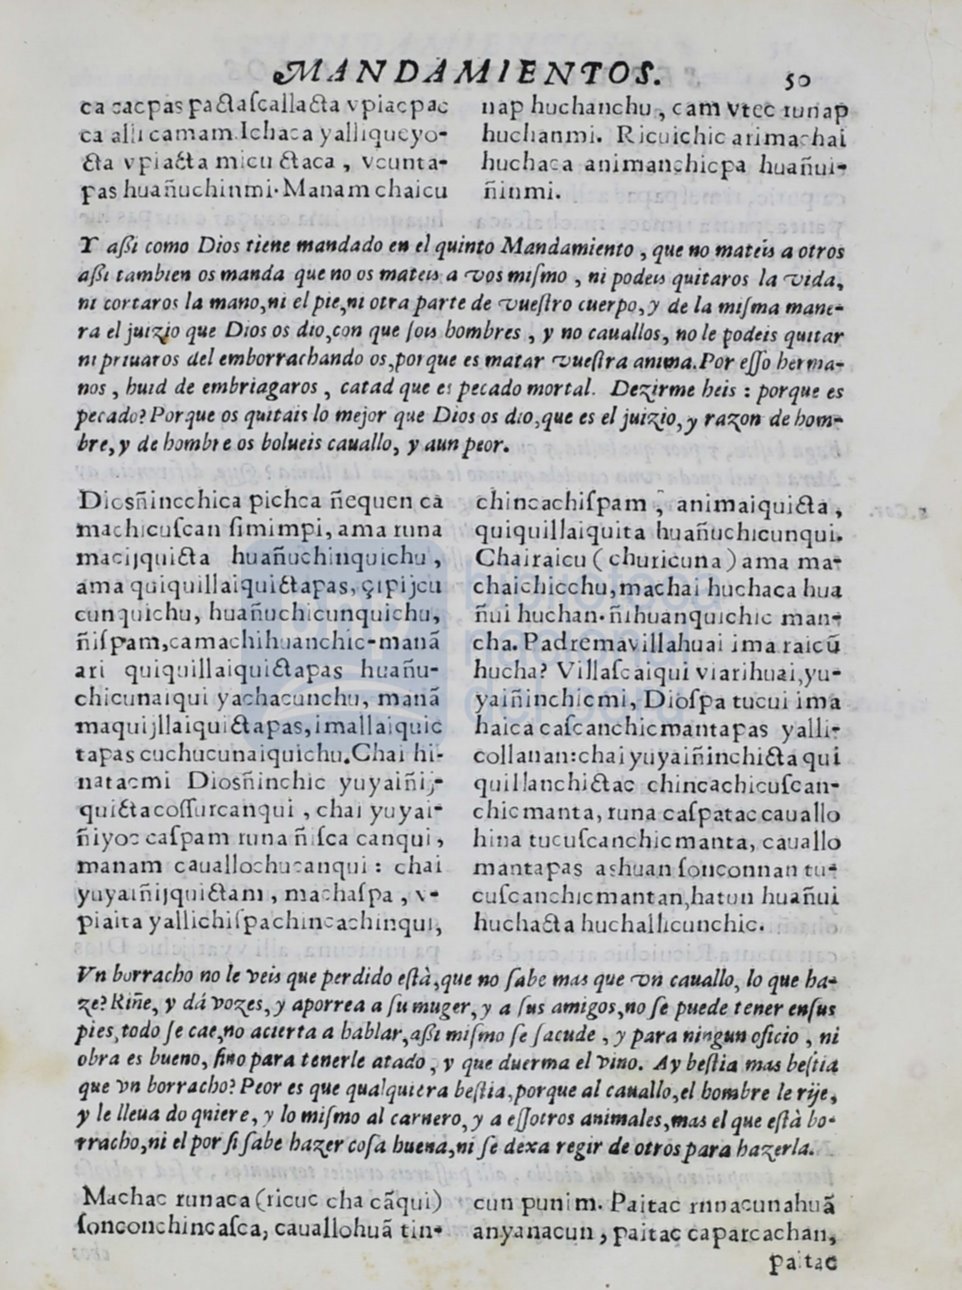 MANDAMIENTOS. 50
ca çacpas pactaſcallacta vpiacpac
ca alli camam. Ichaca yalliqueyo-
cta vpiacta micuctaca, vcunta-
pas huañuchinmi. Manam chaicu
nap huchanchu, cam vtec runap
huchanmi. Ricuichic ari machai
huchaca animanchicpa huañui-
ñinmi.
Y aßi como Dios tiene mandado en el quinto Mandamiento, que no mateis a otros
aßi tambien os manda que no os mateis a vos miſmo, ni podeis quitaros la vida,
ni cortaros la mano, ni el pie, ni otra parte de vueſtro cuerpo, y de la miſma mane-
ra el juizio que Dios os dio, con que ſois hombres, y no cauallos, no le podeis quitar
ni priuaros del emborrachando os, porque es matar vueſtra anima. Por eſſo herma-
nos, huid de embriagaros, catad que es pecado mortal. Dezirme heis: porque es
pecado? Porque os quitais lo mejor que Dios os dio, que es el juizio, y razon de hom-
bre, y de hombre os bolueis cauallo, y aun peor.
Diosñincchica pichca ñequen ca
machicuſcan ſimimpi, ama runa
macijquicta huañuchinquichu,
ama quiquillaiquictapas, çipijcu
cunquichu, huañuchicunquichu,
ñiſpam, camachihuanchic-manã
ari quiquillaiquictapas huañu-
chicunaiqui yachacunchu, manã
maquijllaiquictapas, imallaiquic
tapas cuchucunaiquichu. Chai hi-
natacmi Diosñinchic yuyaiñij-
quictacoſſurcanqui, chai yuyai-
ñiyoc caſpam runa ñiſca canqui,
manam cauallochucanqui: chai
yuyaiñijquictam, machaſpa, v-
piaita yallichiſpa chincachinqui,
chincachiſpam, animaiquicta,
quiquillaiquita huañuchicunqui.
Chairaicu (churicuna) ama ma-
chaichicchu, machai huchaca hua
ñui huchan. ñihuanquichic man-
cha. Padre mavillahuai ima raicũ
hucha? Villaſcaiqui viarihuai, yu-
yaiñinchicmi, Dioſpa tucui ima
haica caſcanchicmantapas yalli-
collanan: chai yuyaiñinchicta qui
quillanchictac chincachicuſcan-
chicmanta, runa caſpatac cauallo
hina tucuſcanchicmanta, cauallo
mantapas ashuan ſonconnan tu-
cuſcanchicmantan, hatun huañui
huchacta huchallicunchic.
Vn borracho no le veis que perdido eſtà, que no ſabe mas que vn cauallo, lo que ha-
ze? Riñe, y dá vozes, y aporrea a ſu muger, y a ſus amigos, no ſe puede tener enſus
pies, todo ſe cae, no acierta a hablar, aßi miſmo ſe ſacude, y para ningun oficio, ni
obra es bueno, ſino para tenerle atado, y que duerma el vino. Ay beſtia mas beſtia
que vn borracho? Peor es que qualquiera beſtia, porque al cauallo, el hombre le rije,
y le lleua do quiere, y lo miſmo al carnero, y a eſſotros animales, mas el que eſtà bo-
rracho, ni el por ſi ſabe hazer coſa buena, ni ſe dexa regir de otros para hazerla.
Machac runaca (ricuc cha cãqui)
ſonconchincaſca, cauallohuã tin-
cun punim. Paitac runacunahuã
anyanacun, paitac caparcachan,
paitac